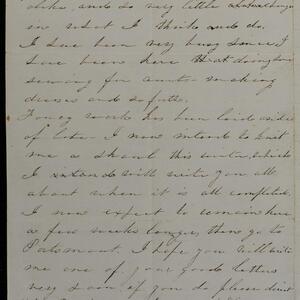 and so very little
in what I think and do.
I have been very busy since I
have been here that doing some
sewing for aunt making
dresses and so forth.
Fancy work has been laid aside
of late. I now intend to knit
me a shawl this winter, which
I intend will write you all
about when it is all completed.
I now expect to remain here
a few weeks longer, then go to
I hope you will write
me one of your good letters
very soon if you do please direct